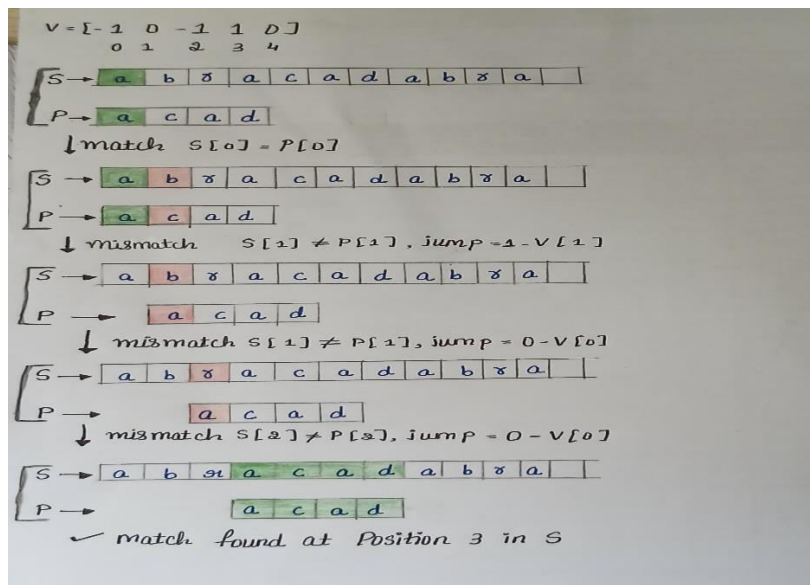 V = [-1 0 -1 1 0]
0 1 2 3 4
S → a b r a c a d a b r a
P → a c a d
↓ match S[0] = P[0]
S → a b r a c a d a b r a
P → a c a d
↓ mismatch S[1] ≠ P[1], jump = 1 - V[1]
S → a b r a c a d a b r a
P → a c a d
↓ mismatch S[1] ≠ P[1], jump = 0 - V[0]
S → a b r a c a d a b r a
P → a c a d
↓ mismatch S[2] ≠ P[2], jump = 0 - V[0]
S → a b r a c a d a b r a
P → a c a d
✓ match found at Position 3 in S